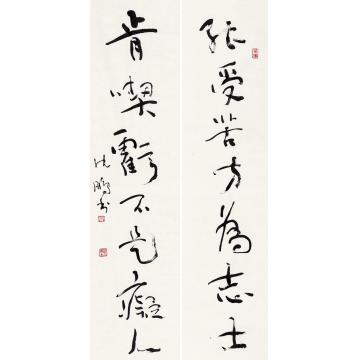 能受苦方為志士
肯喫虧不是癡人
沈鵬書